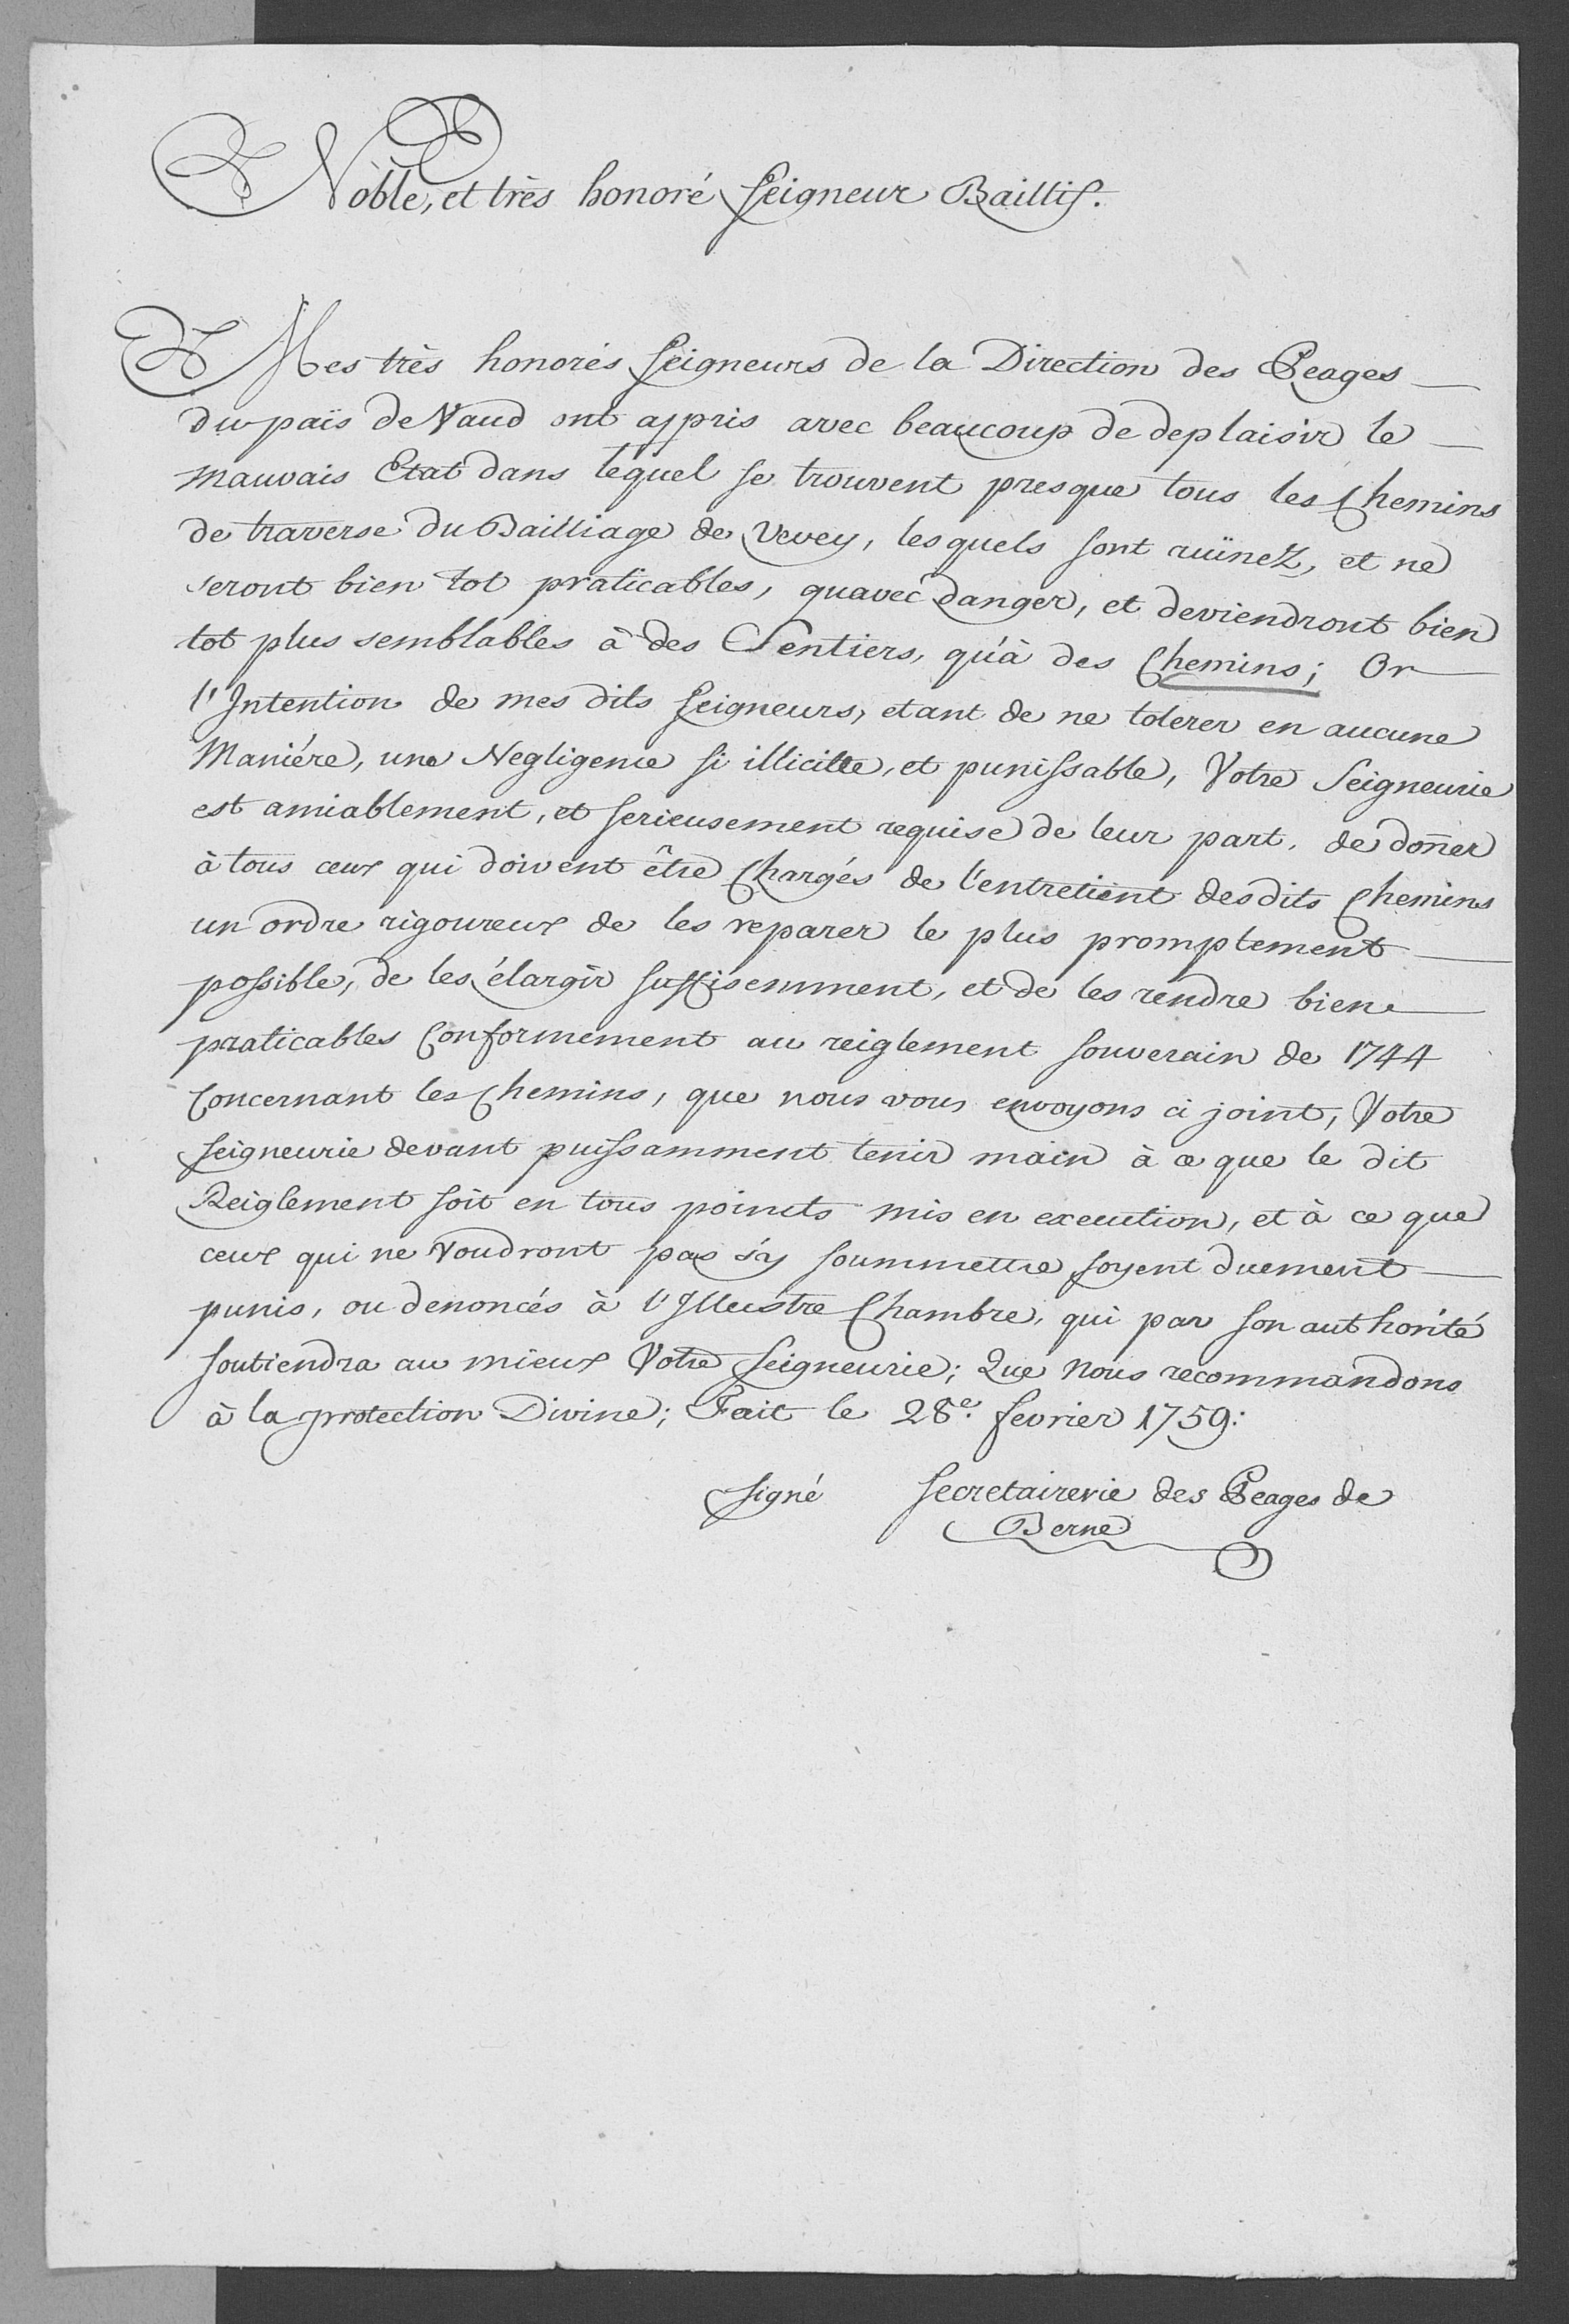 Noble, et très honoré Seigneur Baillif.
Mes très honorés Seigneurs de la Direction des Peages
du païs de Vaud ont appris avec beaucoup de deplaisir le
mauvais Etat dans lequel se trouvent presque tous les Chemins
de traverse du Bailliage de Vevey, lesquels sont ruïnez, et ne
seront bien tot praticables, quavec danger, et deviendront bien
tot plus semblables à des Sentiers, qu'à des Chemins; Or
l'Intention de mes dits Seigneurs, etant de ne tolerer en aucune
Maniére, une Negligence si illicitte, et punissable, Votre Seigneurie
est amiablement, et serieusement requise de leur part, de doñer
à tous ceux qui doivent être Chargés de l'entretient desdits Chemins
un ordre rigoureux de les reparer le plus promptement
possible, de les élargir suffisemment, et de les rendre bien
praticables Conformement au reiglement souverain de 1744
Concernant les Chemins, que nous vous envoyons ci joint, Votre
Seigneurie devant puissamment tenir main à ce que le dit
Reiglement soit en tous poincts mis en execution, et à ce que
ceux qui ne voudront pas s'y soummettre soyent duement
punis, ou denoncés à l'Illustre Chambre, qui par son authorité
soutiendra au mieux Votre Seigneurie; Que Nous recommandons
à la protection Divine; Fait le 28e. fevrier 1759:
Signé Secretairerie des Peages de
Berne